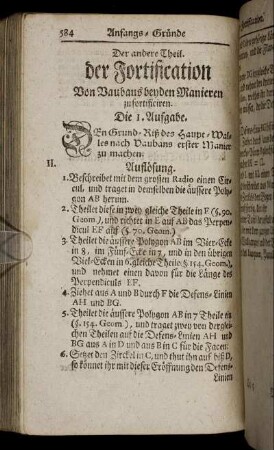 584 Anfangs-Gründe
Der andere Theil.
der Fortification
Von Vaubans beyden Manieren
zu fortificiren.
Die 1. Aufgabe.
DEn Grund-Riß des Haupt-Wal-
les nach Vaubans erster Manier
zu machen.
II. Auflösung.
1. Beschreibet mit dem grossen Radio einen Cir-
cul, und traget in demselben die äussere Poly-
gon AB herum.
2. Theilet diese in zwey gleiche Theile in F (§. 90.
Geom.), und richtet in E auf AB das Perpen-
dicul EF auf (§. 70. Geom.)
3. Theilet die äussere Polygon AB im Vier-Ecke
in 8, im Fünf-Ecke in 7, und in den übrigen
Viel-Ecken in 6 gleiche Theile (§ 154. Geom.),
und nehmet einen davon für die Länge des
Perpendiculs EF.
4. Ziehet aus A und B durch F die Defens-Linien
AH und BG.
5. Theilet die äussere Polygon AB in 7 Theile ein
(§. 154. Geom.), und traget zwey von derglei-
chen Theilen auf die Defens-Linien AH und
BG aus A in D und aus B in C für die Facen.
6. Setzet den Zirckel in C, und thut ihn auf biß D,
so könnet ihr mit dieser Eröffnung den Defens-
Linien